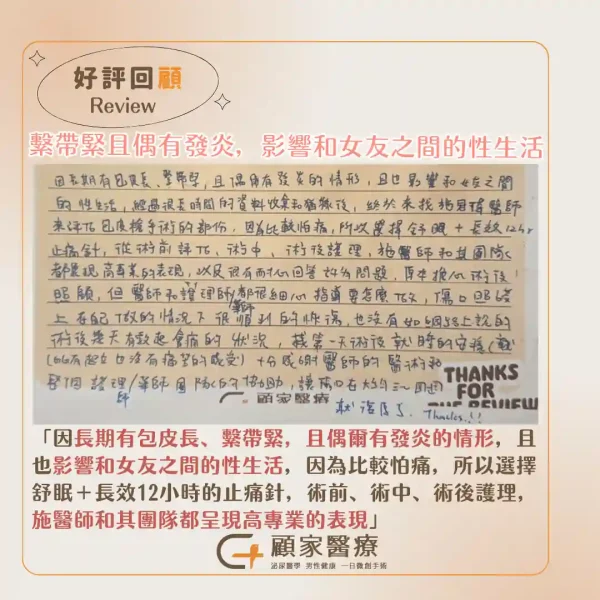 好評回顧
Review
繫帶緊且偶有發炎，影響和女友之間的性生活
因長期有包皮長、繫帶緊，且偶爾有發炎的情形，且也影響和女友之間
的性生活，經過很長時間的資料收集和猶豫後，終於來找施君瑋醫師
來評估包皮槍手術的部份，因為比較怕痛，所以選擇舒眠＋長效12hr
止痛針，從術前評估、術中、術後護理，施醫師和其團隊
都呈現高專業的表現，以及很有耐心回答
問題，原本擔心術後
照顧，但醫師和護理師/藥師都很細心指導要怎麼做，傷口照護
上在自己做的情況下很順利的恢復，也沒有如網路上說的
術後幾天有勃起會痛的狀況，
第一天術後
(
也沒有痛苦的感受) 十分感謝醫師的醫術和
整個護理師/藥師團隊的協助，讓傷口在大約
THANKS
FOR
THE REVIEW
顧家醫療
Thanks!!
「因長期有包皮長、繫帶緊，且偶爾有發炎的情形，且
也影響和女友之間的性生活，因為比較怕痛，所以選擇
舒眠＋長效12小時的止痛針，術前、術中、術後護理，
施醫師和其團隊都呈現高專業的表現」
顧家醫療
泌尿醫學 男性健康 一日微創手術